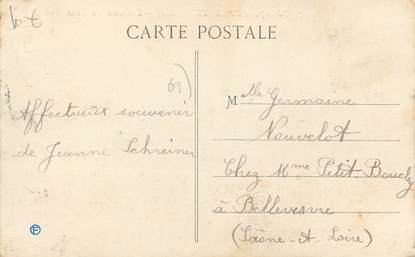 CARTE POSTALE
Affectueux souvenir
de Jeanne Schreiner
Mlle Germaine
Nouvelot
Chez Mme Petit-Bouchy
à Bellevesvre
(Saône-et-Loire)